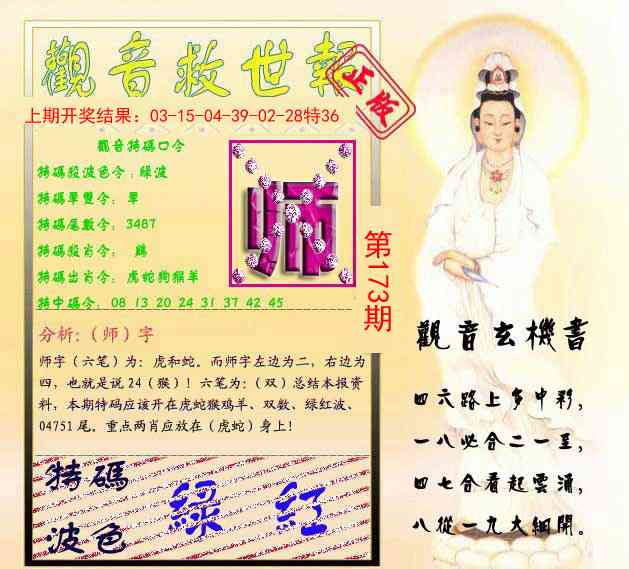 觀音救世報
正版
上期开奖结果：03-15-04-39-02-28特36
觀音特碼口令
特碼殺波色令：綠波
特碼單雙令：單
特碼尾數令：3487
特碼殺肖令：鷄
特碼出肖令：虎蛇狗猴羊
特中碼令：08 13 20 24 31 37 42 45
师
第173期
分析:（师）字
师字（六笔）为：虎和蛇。而师字左边为二，右边为
四，也就是说 24（猴）！六笔为：（双）总结本报资
料，本期特码应该开在虎蛇猴鸡羊、双数、绿红波、
04751 尾。重点两肖应放在（虎蛇）身上！
特碼
波色
綠 紅
觀音玄機書
四六路上多中彩，
一八必合二一至，
四七合看起雲涌，
八從一九大細開。